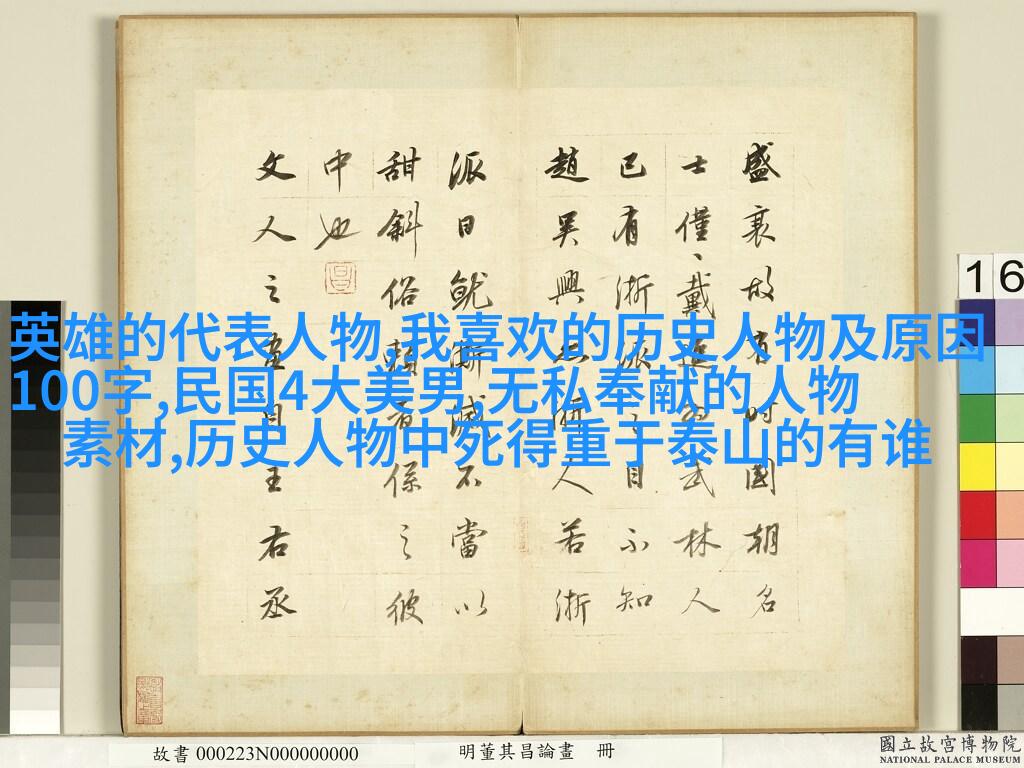 盛衰故有時國朝名
士僅々戴進為武林人
已有浙派之目不知
趙吳興亦浙人若浙
派日就澌滅不當以
甜斜俗賴者係之彼
中也
文人之畫自王右丞
英雄的代表人物,我喜欢的历史人物及原因
100字,民国4大美男,无私奉献的人物
素材,历史人物中死得重于泰山的有谁
16
故書 000223N000000000
明董其昌論畫 冊
國立故宮博物院
NATIONAL PALACE MUSEUM